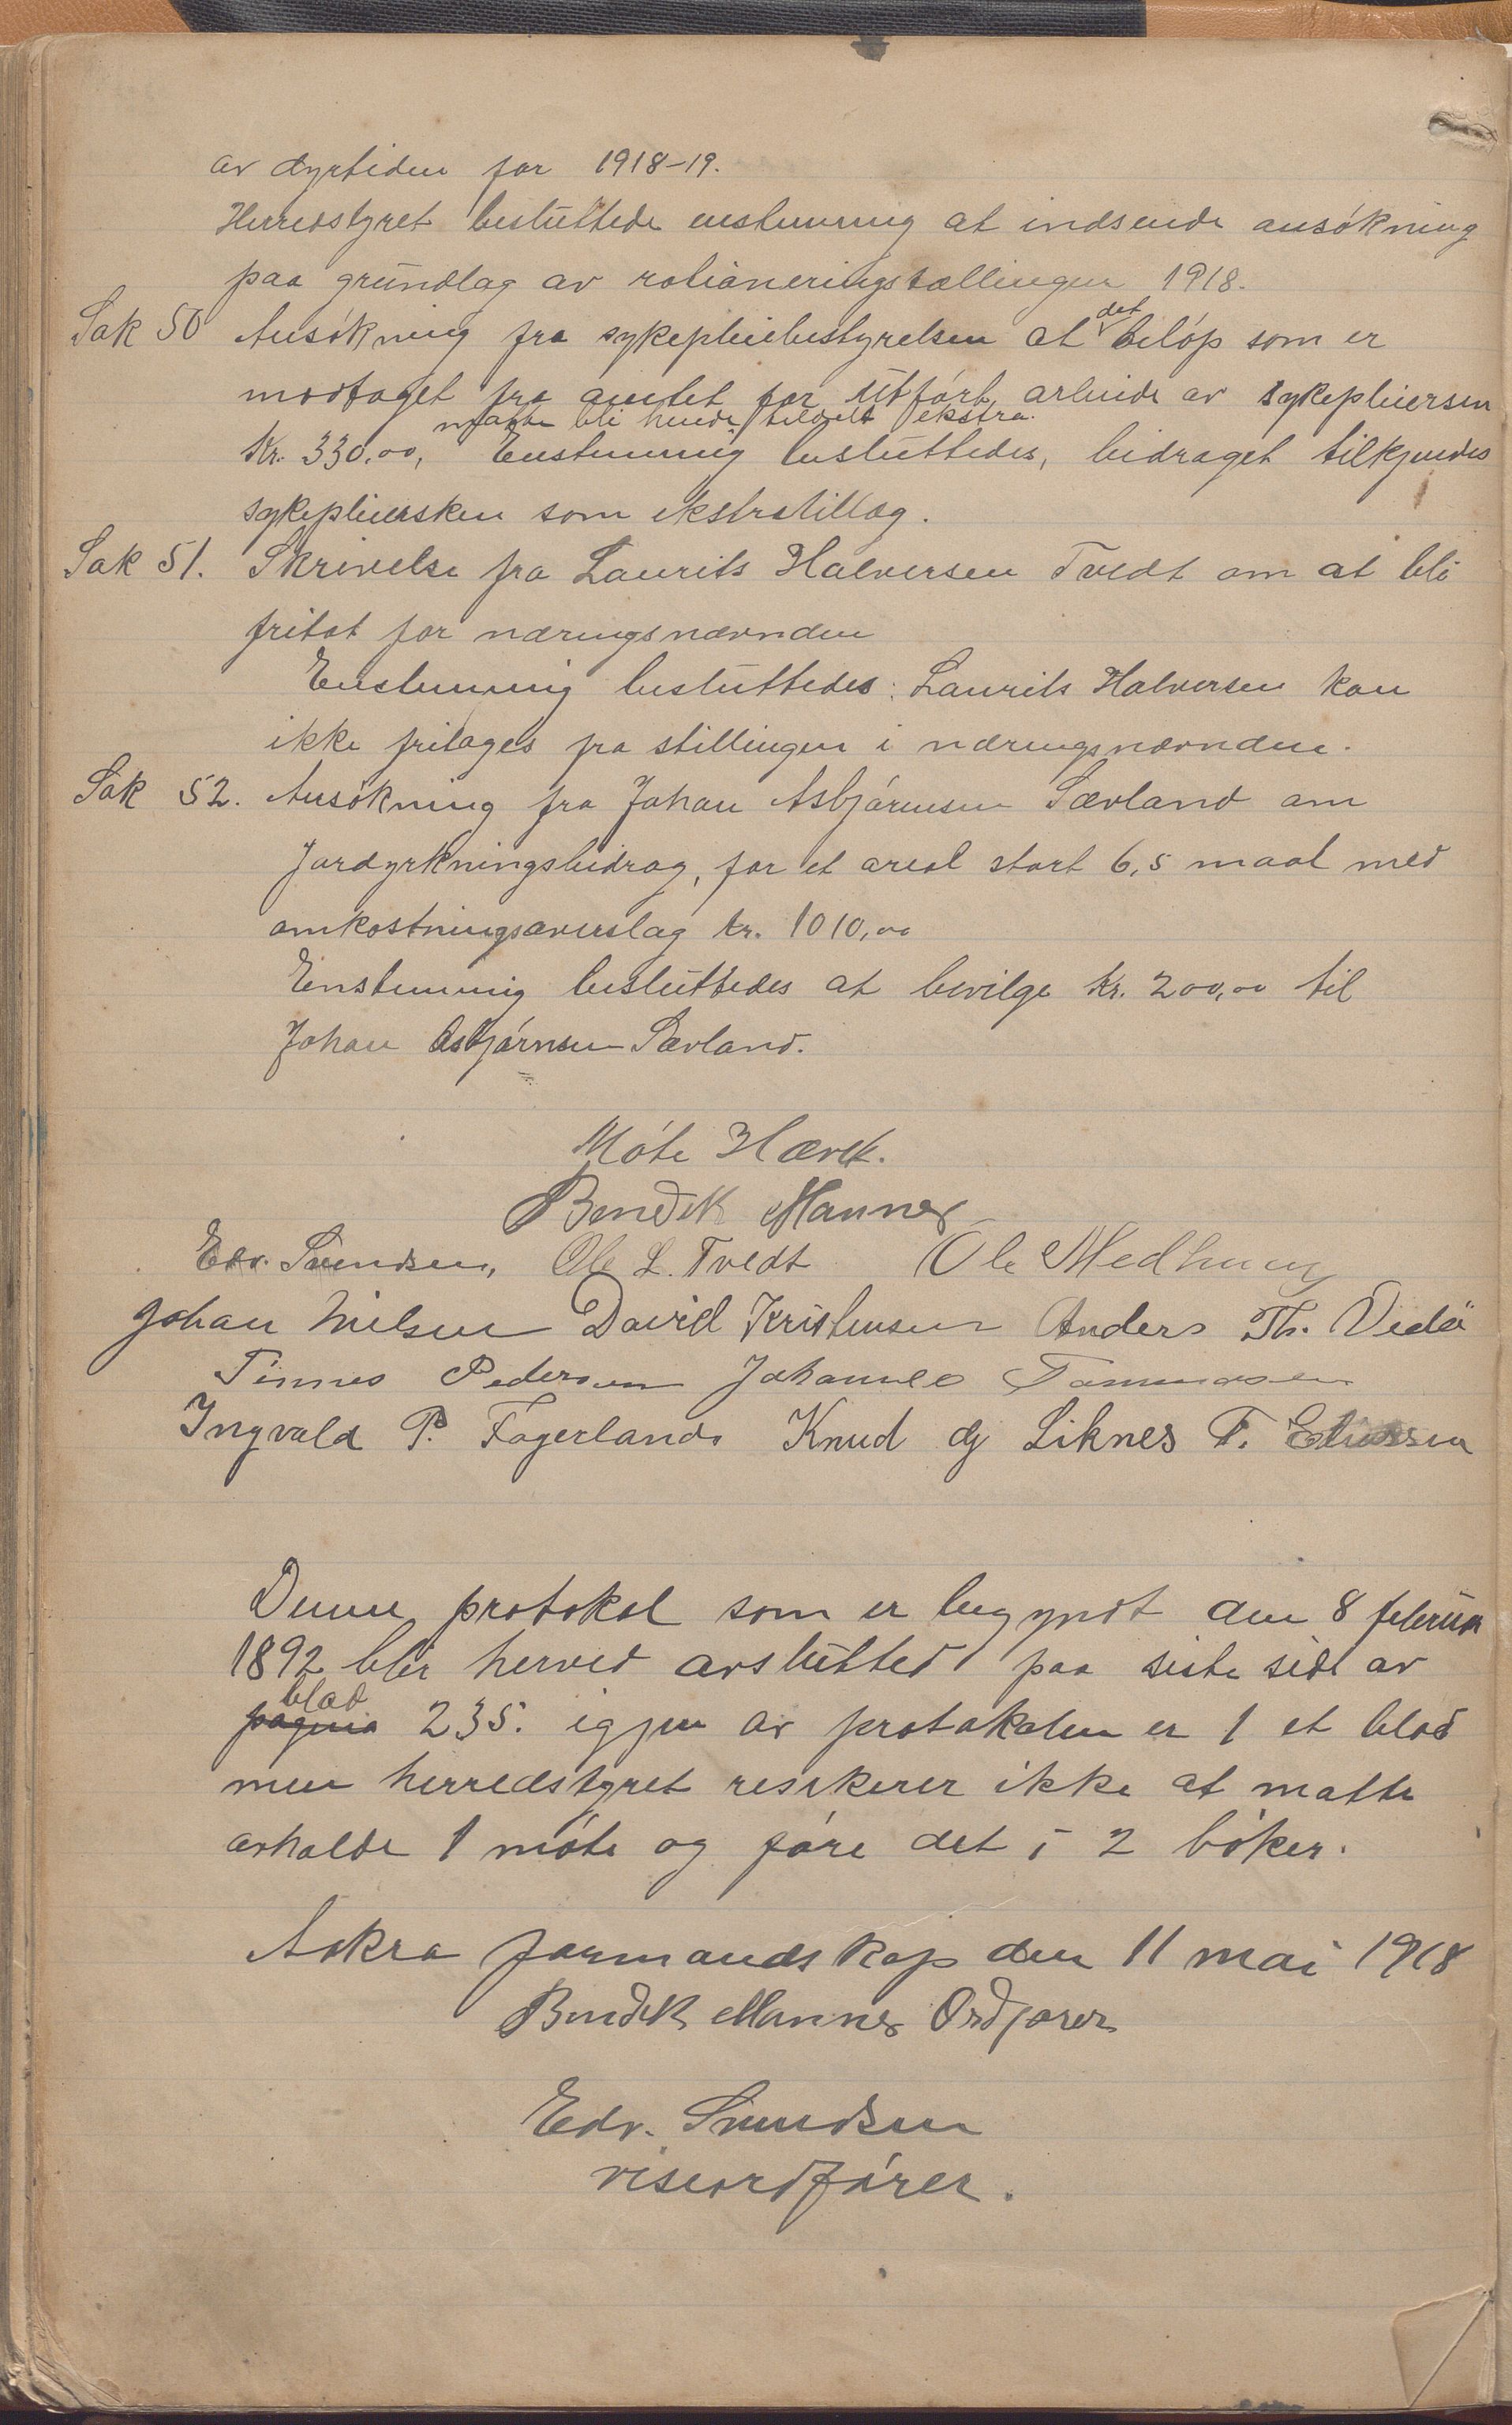 av dyrtiden for 1918-19.
Herredstyret besluttede enstemmig at indsende ansökning
paa grundlag av rationeringstællingen 1918.
Sak 50 Ansökning fra sykepleiebestyrelsen at det belöp som er
modtaget fra amtet for utfört arbeide av sykepleiersen
maatte bli hende tildelt ekstra.
Kr. 330,00, Enstemmig besluttedes, bidraget tilkjendes
sykepleiersken som ekstratillæg.
Sak 51. Skrivelse fra Laurits Halversen Tvedt om at bli
fritat for næringsnævnden
Enstemmig besluttedes: Laurits Halversen kan
ikke fritages fra stillingen i næringsnævnden.
Sak 52. Ansökning fra Johan Asbjörnsen Sævland om
Jordyrkningsbidrag, for et areal stort 6,5 maal med
omkostningsoverslag kr. 1010,00
Enstemmig besluttedes at bevilge kr. 200,00 til
Johan Asbjörnsen Sævland.
Möte Hævet.
Bendik Mannes
Edv. Svendsen, Ole L. Tvedt Ole Medhaug
Johan Nilsen David Kristensen Anders Th. Vedö
Tinnes Pedersen Johannes Tommasen
Ingvald P. Fagerland Knud dj Liknes T. Eliassen
Denne protokol som er begyndt den 8 februar
1892 blir herved avsluttet paa siste side av
blad
pagina 235. igjen av protokolen er 1 et blad
men herredstyret resikerer ikke at matte
avholde 1 möte og före det i 2 böker.
Aakra formandskap den 11 mai 1918
Bendik Mannes Ordförer
Edv. Svendsen
viseordförer.